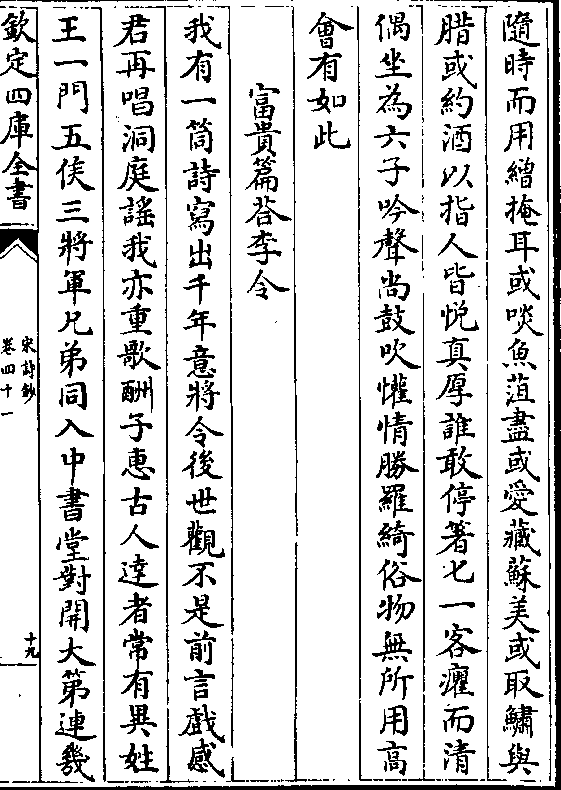 隨時而用繒掩耳或啖魚菹盡或愛藏蘇美或取鱐與
腊或約酒以指人皆悦真厚誰敢停箸匕一客癯而清
偶坐為六子吟聲尚鼓吹懽情勝羅綺俗物無所用高
會有如此
富貴篇荅李令
我有一筒詩寫出千年意將令後世觀不是前言戲感
君再唱洞庭謡我亦重歌酬子惠古人達者常有異姓
王一門五侯三將軍兄弟同入中書堂對開大第連幾
欽定四庫全書
宋詩鈔
卷四十一
十九